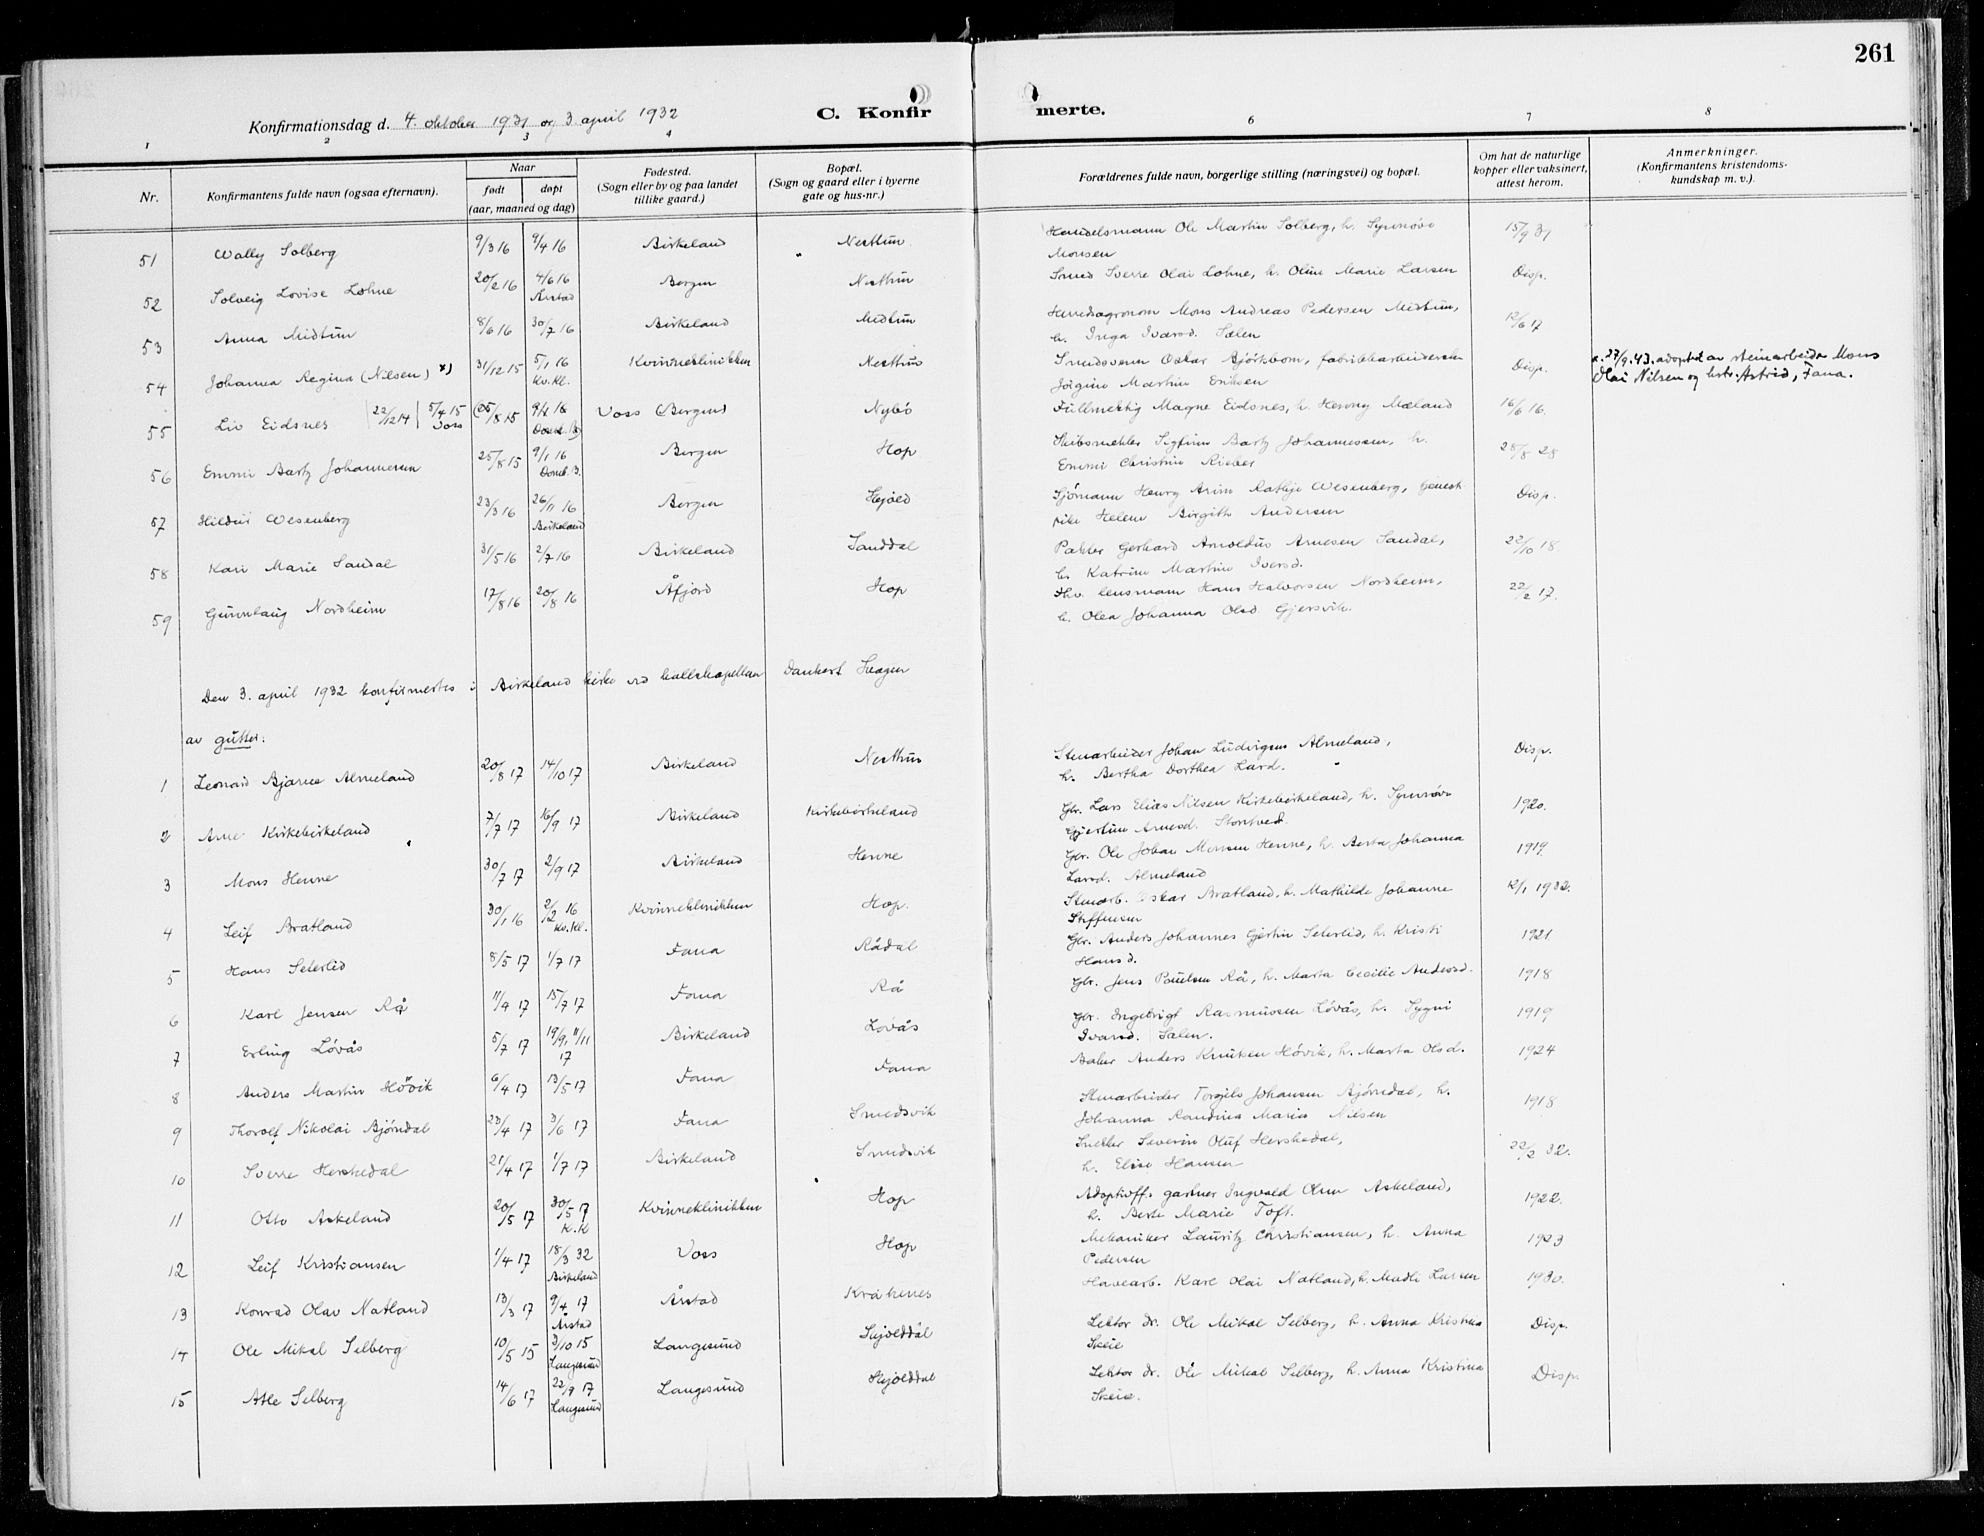 261
Konfirmationsdag d. 4. oktober 1931 og 3. april 1932 C. Konfirmerte.
1 2 3 4 6 7 8
Nr. Konfirmantens fulde navn (ogsaa efternavn). Naar født døpt (aar, maaned og dag) Fødested. (Sogn eller by og paa landet tillike gaard.) Bopæl. (Sogn og gaard eller i byerne gate og hus-nr.) Forældrenes fulde navn, borgerlige stilling (næringsvei) og bopæl. Om hat de naturlige kopper eller vaksinert, attest herom. Anmerkninger. (Konfirmantens kristendoms-kundskap m. v.).
51 Wally Solberg 9/3 16 9/4 16 Birkeland Nesttun Handelsmann Ole Martin Solberg, h. Synnøve Monsen 15/9 31
52 Solveig Lovise Lohne 20/2 16 4/6 16 Årstad Bergen Nesttun Smed Sverre Olai Lohne, h. Oline Marie Larsen Disp.
53 Anna Midtun 8/6 16 30/7 16 Birkeland Midtun Herredsagronom Mons Andreas Pedersen Midtun, h. Inga Ivarsd. Sælen 12/6 17
54 Johanna Regina (Nilsen) x) 31/12 15 5/1 16 Kv. Kl. Kvinneklinikken Nesttun Smedsvenn Oskar Bjørkbom, fabrikkarbeiderske Jørgine Martine Eriksen Disp. x. 27/9.43. adoptert av steinarbeider Mons Olai Nilsen og hstr. Astrid, Fana.
55 Liv Eidsnes 22/12 14 5/4 15 Voss (25/8 15 9/1 16 Domk. B) Voss (Bergen) Nybø Fullmektig Magne Eidsnes, h. Henny Mæland 16/6 16.
56 Emmi Bartz Johannessen 25/8 15 9/1 16 Domk. B. Bergen Hop Skibsmekler Sigfinn Bartz Johannessen, h. Emmi Christine Rieber 28/8 28
57 Hildur Wesenberg 23/3 16 26/11 16 Birkeland Bergen Skjold Sjømann Henry Arim Rathje Wesenberg, tjenestepike Helene Birgitte Andersen Disp.
58 Kari Marie Sandal 31/5 16 2/7 16 Birkeland Sanddal Pakker Gerhard Arnoldus Arnesen Sandal, h. Katrine Martine Iversd. 22/10 18.
59 Gunnlaug Nordheim 17/8 16 20/8 16 Åfjord Hop Fhv. lensmann Hans Halvorsen Nordheim, h. Olea Johanna Olsd. Gjersvik. 22/2 17.
Den 3. april 1932 konfirmertes i Birkeland kirke ved kallskapellan Dankert Skagen
av gutter:
1 Leonard Bjarne Almeland 20/8 17 14/10 17 Birkeland Nesttun Stenarbeider Johan Ludvigsen Almeland, h. Bertha Dorthea Larsd. Disp.
2 Arne Kirkebirkeland 7/7 17 16/9 17 Birkeland Kirkebirkeland Gbr. Lars Elias Nilsen Kirkebirkeland, h. Synnøve Gjertine Arnesd. Storetvedt 1920.
3 Mons Henne 30/7 17 2/9 17 Birkeland Henne Gbr. Ole Johan Monsen Henne, h. Berta Johanna Larsd. Almeland 1919
4 Leif Bratland 30/1 16 2/2 16 Kv. Kl. Kvinneklinikken Hop. Stenarb. Oskar Bratland, h. Mathilde Johanne Steffensen 12/1 1932.
5 Hans Seterlid 8/5 17 1/7 17 Fana Rådal Gbr. Anders Johannes Gjertin Seterlid, h. Kristi Hansd. 1921
6 Karl Jensen Rå 11/4 17 15/7 17 Fana Rå Gbr. Jens Paulsen Rå, h. Marta Cecilie Andersd. 1918
7 Erling Løvås 5/7 17 19/9, 11/11 17 Birkeland Løvås Gbr. Ingebrigt Rasmussen Løvås, h. Sygni Ivarsd. Sælen. 1919
8 Anders Martin Høvik 6/4 17 13/5 17 Fana Fana Baker Anders Knutsen Høvik, h. Marta Olsd. 1924
9 Thorolf Nikolai Bjørndal 23/4 17 3/6 17 Fana Smedsvik Stenarbeider Torgils Johansen Bjørndal, h. Johanna Randina Maria Nilsen 1918
10 Sverre Herskedal 21/4 17 1/7 17 Birkeland Smedsvik Snekker Severin Oluf Herskedal, h. Elise Hansen 22/2 32.
11 Otto Askeland 20/5 17 30/5 17 K.K Kvinneklinikken Hop Adoptivff. gartner Ingvald Olsen Askeland, h. Berte Marie Toft. 1922.
12 Leif Kristiansen 1/4 17 18/3 32 Birkeland Voss Hop Mekaniker Lauritz Christiansen, h. Anna Pedersen 1923
13 Konrad Olav Natland 13/3 17 9/4 17 Årstad Årstad Kråkenes Havearb. Karl Olai Natland, h. Madli Larsen 1930.
14 Ole Mikal Selberg 10/5 15 3/10 15 Langesund Langesund Skjolddal Lektor dr. Ole Mikal Selberg, h. Anna Kristina Skeie Disp.
15 Atle Selberg 14/6 17 22/9 17 Langesund Langesund Skjolddal Lektor dr. Ole Mikal Selberg, h. Anna Kristina Skeie. Disp.